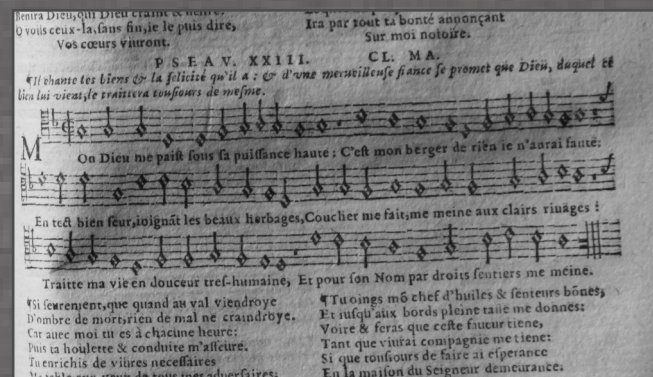 Benira Dieu, qui Dieu craint &
O vous ceux-la, sans fin, ie le puis dire,
Vos cœurs viuront.
Ira par tout ta bonté annonçant
Sur moi notoire.
PSEAV. XXIII. CL. MA.
¶Il chante les biens & la felicité qu'il a : & d'vne merueilleuse fiance se promet que Dieu, duquel ce
bien lui vient, le traittera tousiours de mesme.
MOn Dieu me paist sous sa puissance haute : C'est mon berger de rien ie n'aurai faute:
En tect bien seur, ioignāt les beaux herbages, Coucher me fait, me meine aux clairs riuages :
Traitte ma vie en douceur tres-humaine, Et pour son Nom par droits sentiers me meine.
¶Si seurement, que quand au val viendroye
D'ombre de mort, rien de mal ne craindroye,
Car auec moi tu es à chacune heure:
Puis ta houlette & conduite m'asseure.
Tu enrichis de viures necessaires
Ma table aux yeux de tous mes aduersaires:
¶Tu oings mō chef d'huiles & senteurs bōnes,
Et iusqu'aux bords pleine tasse me donnes:
Voire & feras que ceste faueur tiene,
Tant que viurai compagnie me tiene:
Si que tousiours de faire ai esperance
En la maison du Seigneur demeurance.